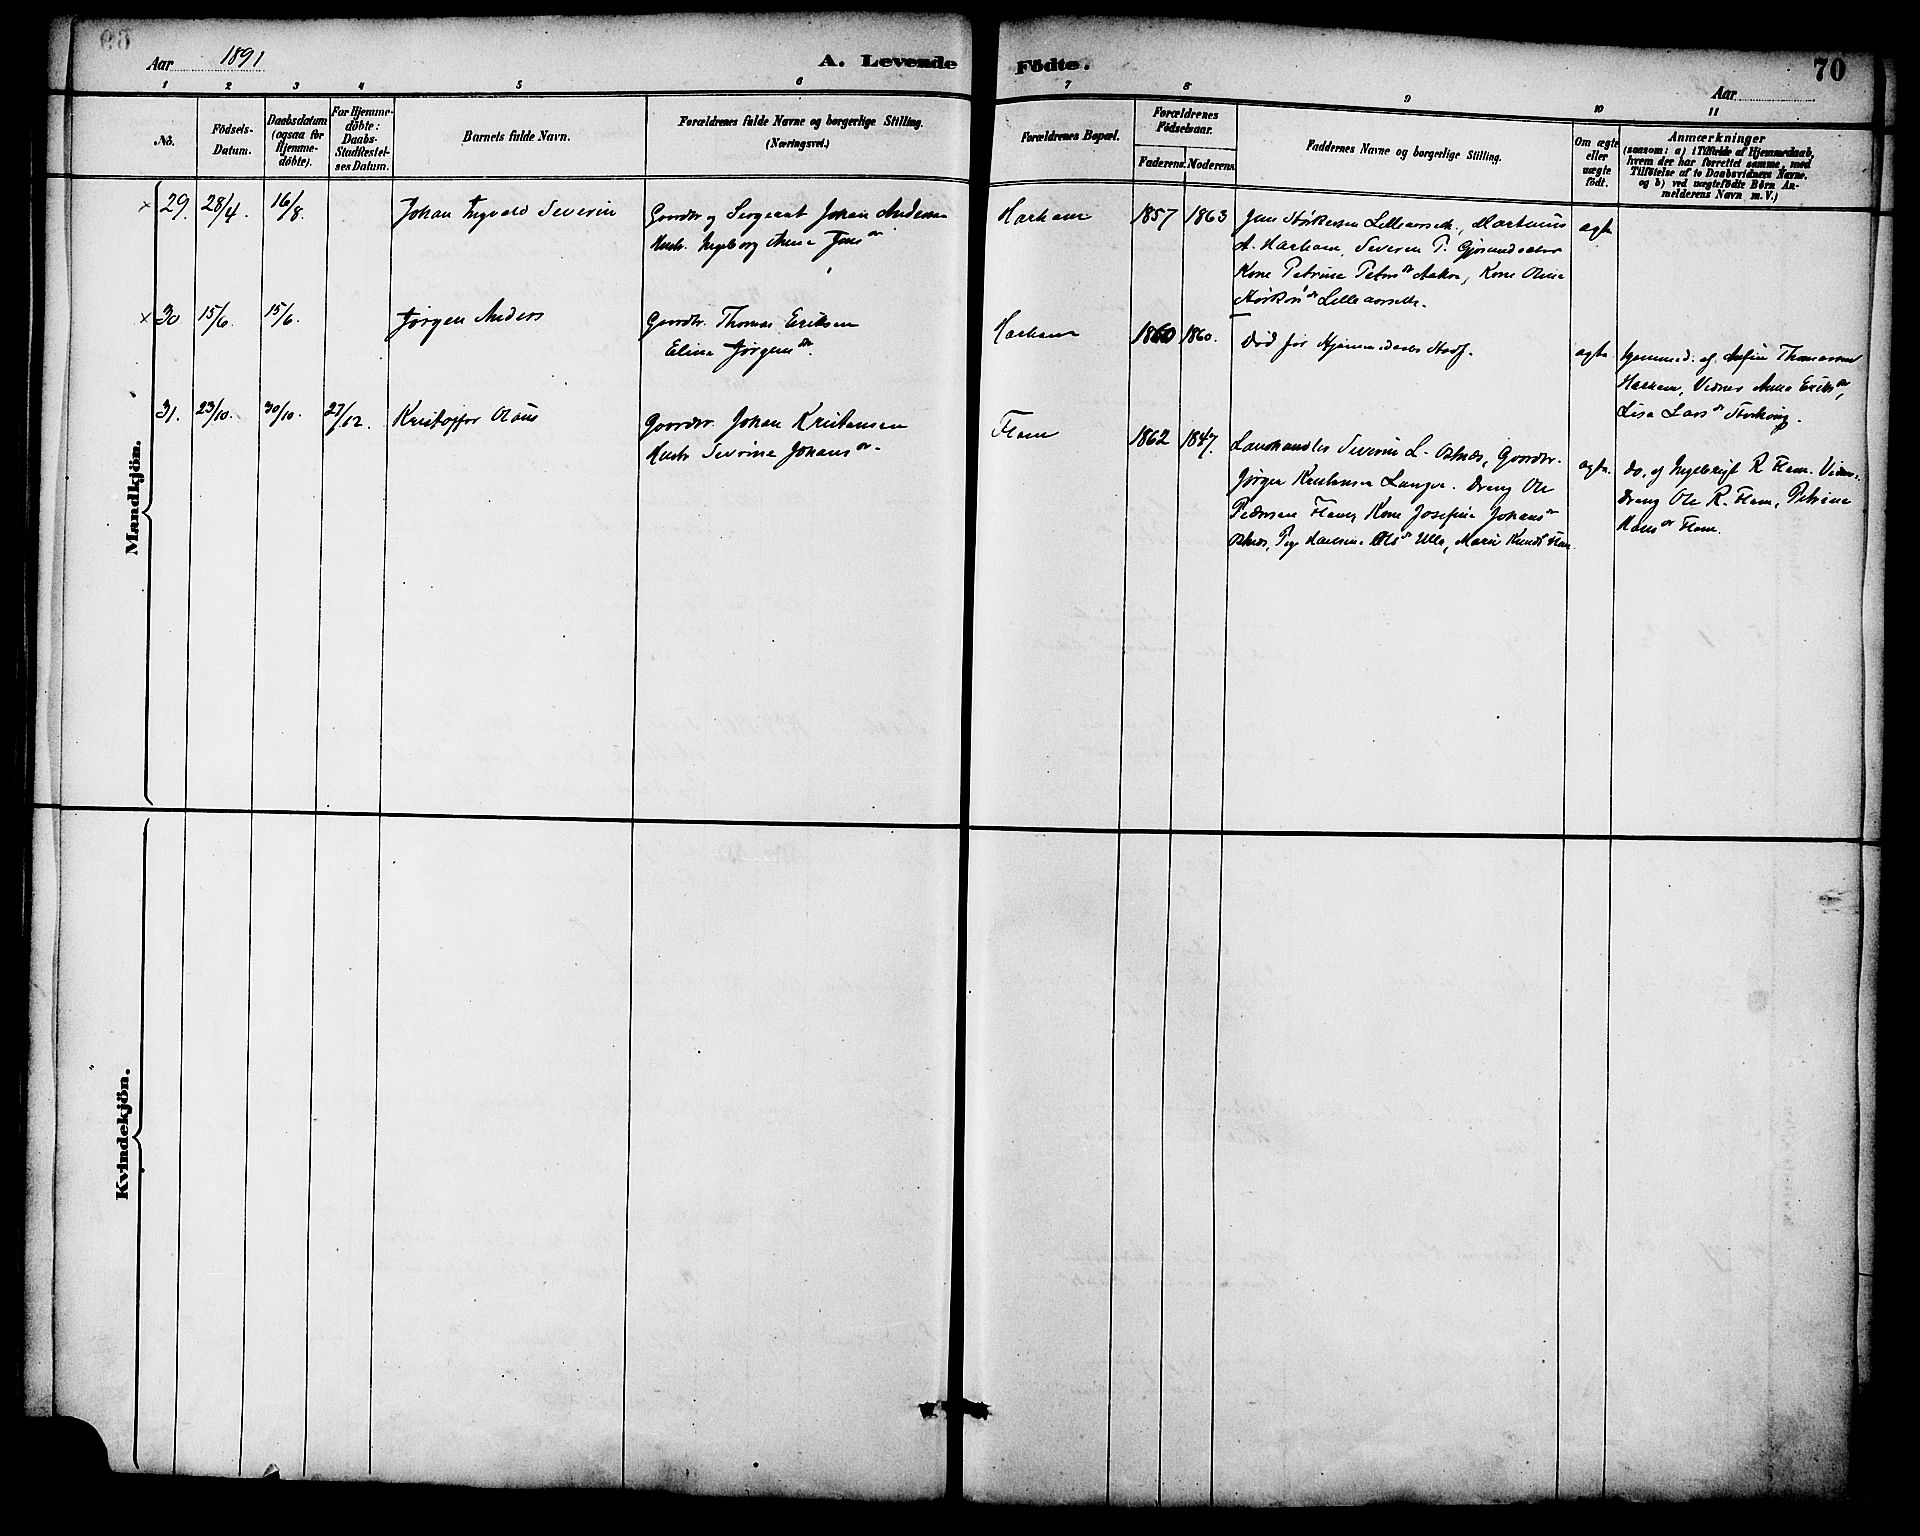 Aar 1891
A. Levende
Födte.
70
Aar
1 2 3 4 5 6 7 8 9 10 11
No.
Födsels-
Datum.
Daabsdatum
(ogsaa for
Hjemme-
döbte).
For Hjemme-
döbte:
Daabs-
Stadfæstel-
ses Datum.
Barnets fulde Navn.
Forældrenes fulde Navne og borgerlige Stilling.
(Næringsvei.)
Forældrenes Bopæl.
Forældrenes
Födselsaar.
Faderens. Moderens.
Faddernes Navne og borgerlige Stilling.
Om ægte
eller
uægte
födt.
Anmærkninger
(saasom: a) i Tilfælde af Hjemmedaab,
hvem der har forrettet samme, med
Tilföielse af to Daabsvidners Navne.
og b) ved uægtefödte Börn An-
melderens Navn m. V.)
Mandkjön.
× 29. 28/4. 16/8. Johan Ingvald Severin
Gaardbr. og Sergeant Johan Andersen
Hustr. Ingeborg Anna Jens dr
Harham 1857 1863
Lilleaarseth, Martinus
A. Harham, Severin P.
Kone Petrine Peters dr Aakre, Kone Oline
Lilleaarseth.
ægte
× 30 15/6. 15/6. Jørgen Anders
Gaardbr. Thomas Eriksen
Eline Jørgens dr.
Harham 1860 1860.
Død før Hjemmedaabs Stadf.
ægte.
hjemmed. af Thomassen
Harham, Vidner Anna Eriks dr,
Lisa Lars dr
31. 23/10. 30/10. 27/12. Kristoffer Olaus
Gaardbr. Johan Kristensen
Hustr. Severine Johans dr.
Flem 1862 1847.
Landhandler Severin L. Østnæs, Gaardbr.
Jørgen Kristensen Longva. Dreng Ole
Pedersen Flem, Kone Josefine Johans dr
Østnæs, Pige Ols dr Ulla, Marie Knuds Flem
ægte.
do. af Ingebrigt R. Flem. Vidn.
Dreng Ole R. Flem, Petrine
Hans dr Flem.
Kvindekjön.